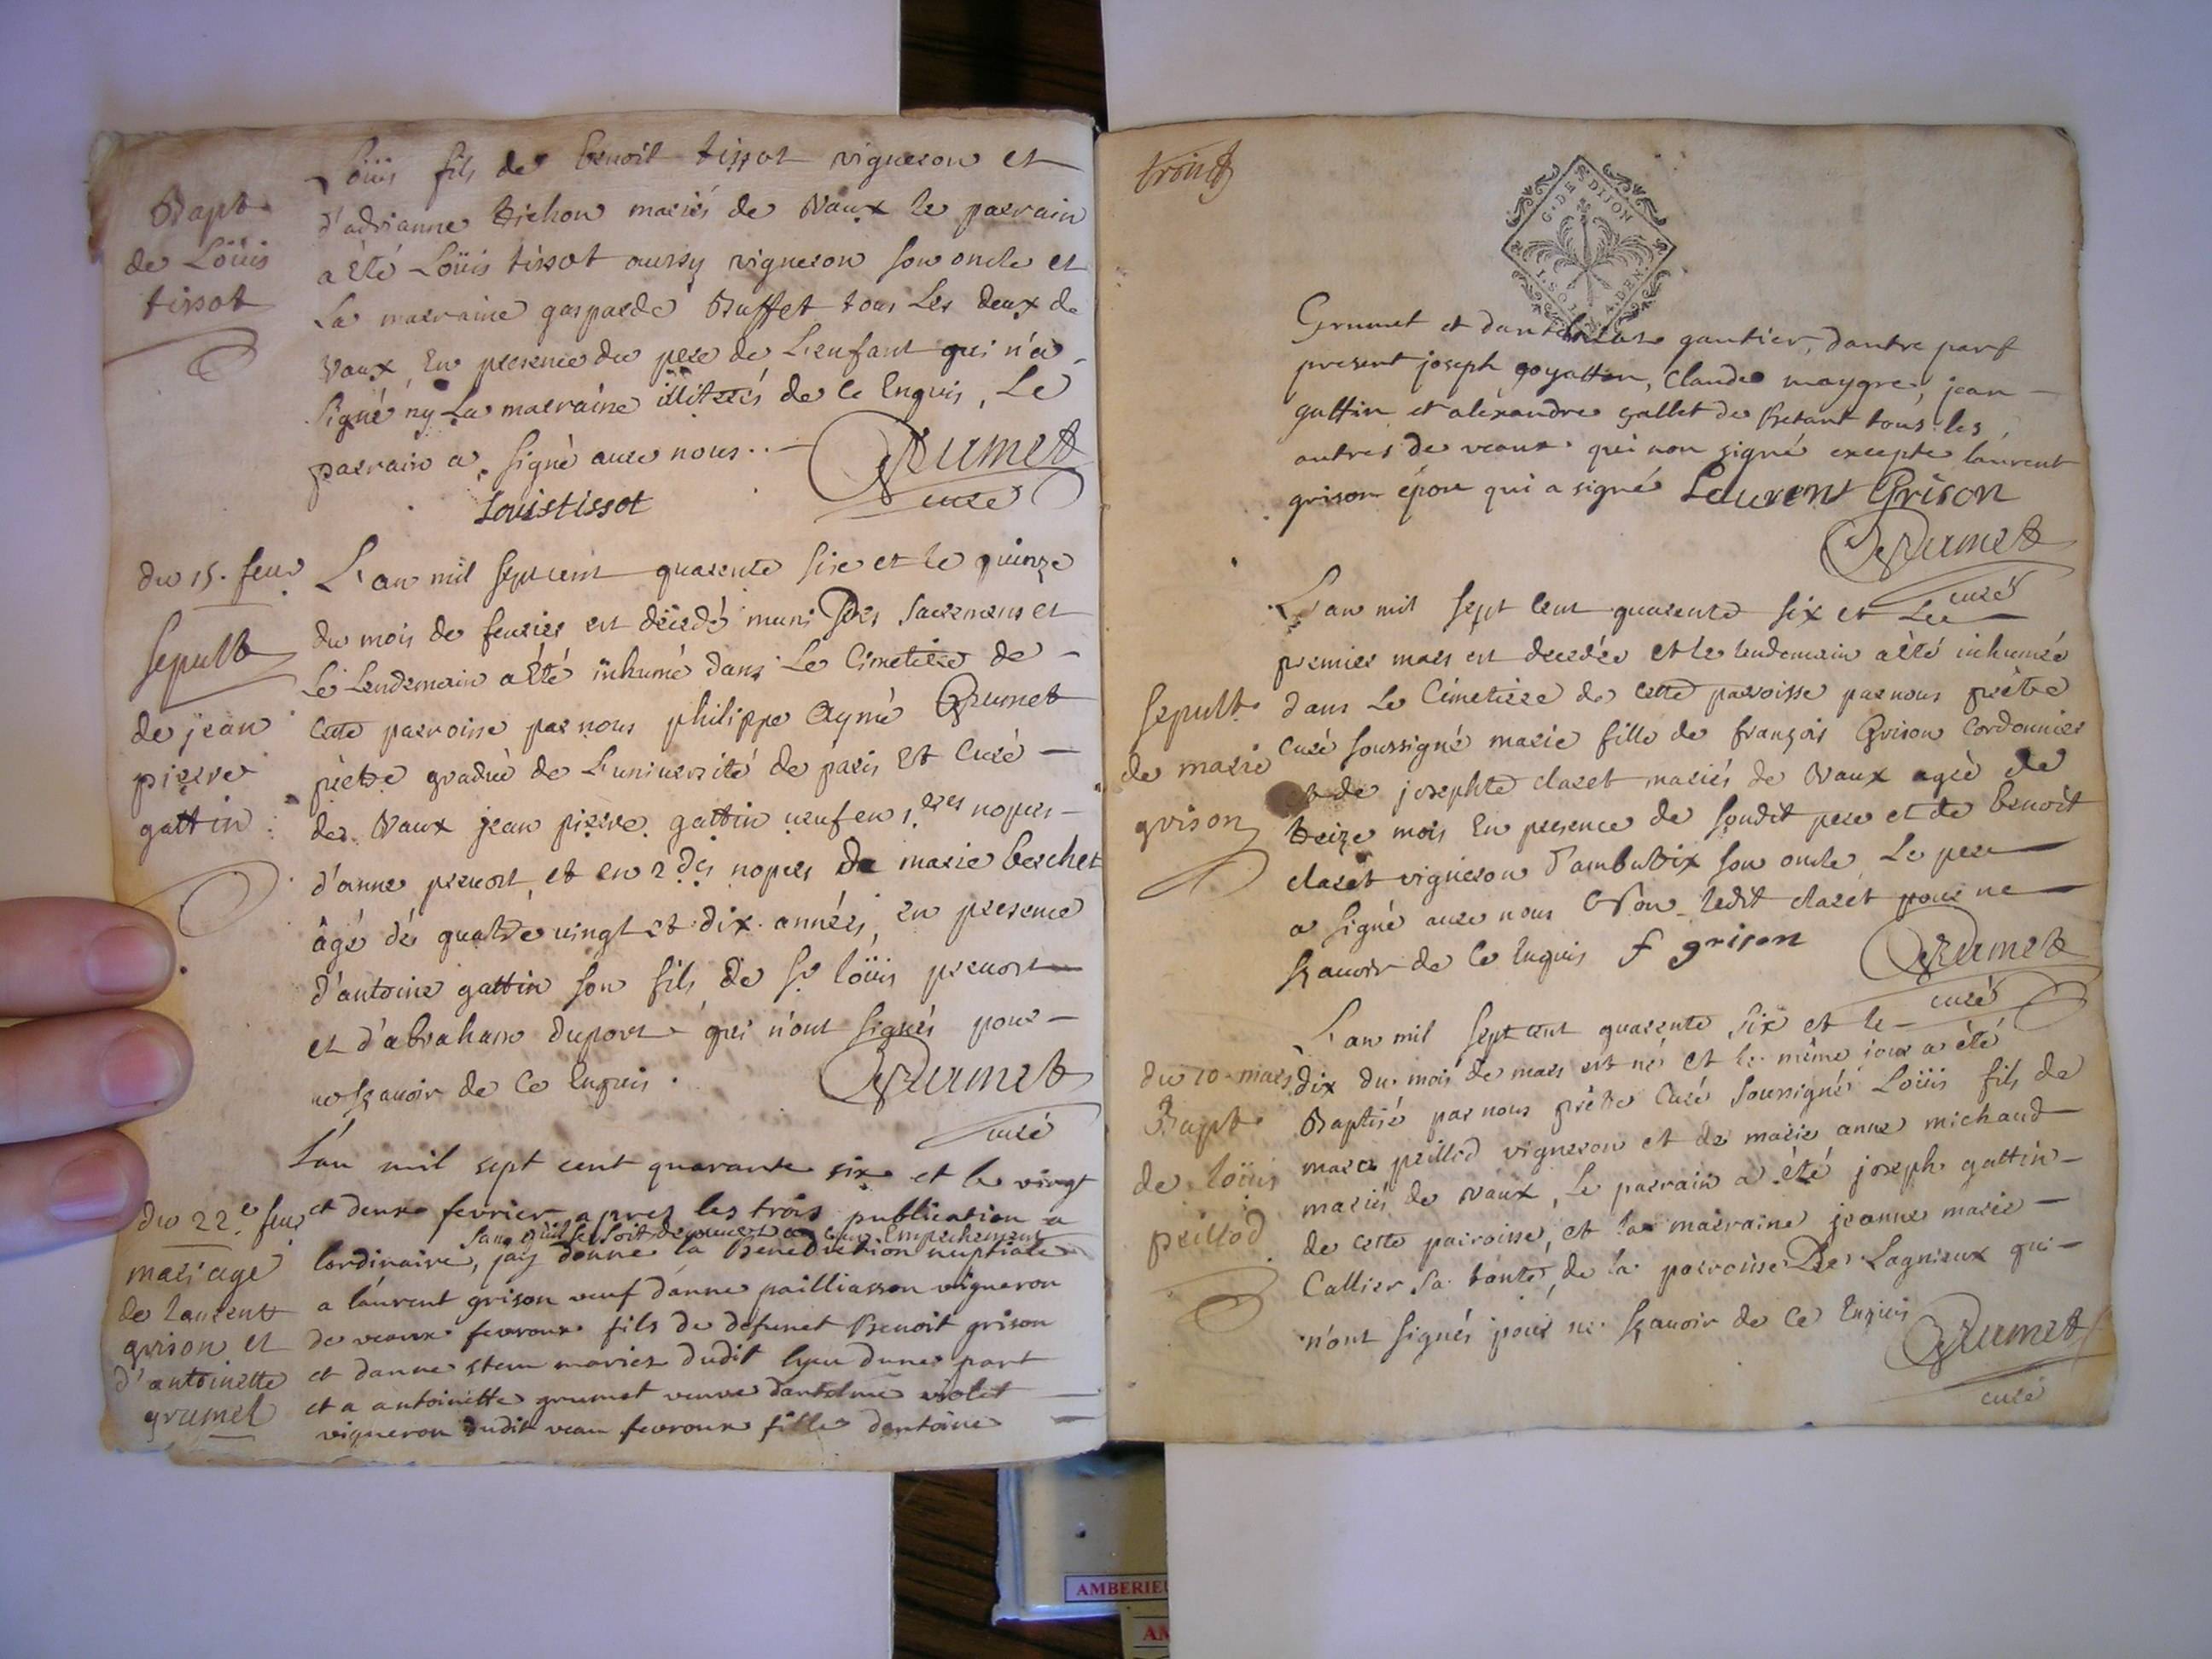 Bapt
de Loüis
tissot
Loüis fils de benoit tissot vigneron et
d'adrianne trichon mariés de Vaux le parrain
a été Loüis tissot aussy vigneron son oncle et
La marraine gasparde Buffet tous Les deux de
Vaux En presence du pere de L'enfant qui n'a
signé ny La marraine illiterés de ce Enquis, Le
parrain a signé avec nous
Grumet
curé
Louis tissot
du 15. feur
Sepult
de jean
pierre
gattin
L'an mil sept cent quarente six et le quinze
du mois de feurier est décedé muni des sacremens et
Le Lendemain a été inhumé dans Le Cimetiere de
cette parroisse par nous philippe Aymé Grumet
prètre gradué de L'université de paris Et Curé
de Vaux jean pierre gattin veuf en 1.eres nopces
d'anne preuost et en 2.des nopces de marie berchet
âgé de quatre vingt et dix années, en presence
d'antoine gattin son fils de Sr. loüis preuost
et d'abraham duport qui n'ont signés pour
ne sçavoir de Ce Enquis.
Grumet
curé
du 22.e feur
mariage
de laurent
grison et
d'antoinette
grumet
L'an mil sept cent quarante six et le vingt
et deux fevrier apres les trois publication a
sans qu'il se soit decouvert aucun Empechement
lordinaire, jay donné la Benediction nuptiale
a laurent grison veuf danne pailliasson vigneron
de veaux fevroux fils de defunct Benoit grison
et danne stem mariez dudit lyeu dune part
et a antoinette grumet veuve dantelme violet
vigneron dudit veau fevroux fille dantoine
trois
G. DE DIJON
Grumet et dantelmaz gautier, dautre part
present joseph goyatton, Claude maygre, jean
gattin et alexandre gallet de Betant tous les
autres de veaux qui non signé excepte laurent
grison époux qui a signé Laurent Grison
Grumet
curé
Sepult
de marie
grison
L'an mil sept cent quarente six et Le
premier mars est decedée et le lendemain a été inhumée
dans Le Cimetiere de cette parroisse par nous prètre
curé soussigné marie fille de françois Grison Cordonnier
et de josephte claret mariés de Vaux agée de
treize mois En presence de sondit pere et de benoit
claret vigneron d'ambutrix son oncle Le pere
a signé avec nous Et non ledit claret pour ne
sçavoir de Ce Enquis f grison
Grumet
curé
du 10 mars
Bapt
de loüis
peillod
L'an mil sept cent quarente six et le
dix du mois de mars est né et le même jour a été
Baptisé par nous prètre Curé soussigné Loüis fils de
marc peillod vigneron et de marie anne michaud
mariés de Vaux, Le parrain a été joseph gattin
de cette parroisse, et la marraine jeanne marie
Callier sa tante, de la parroise De Lagnieux qui
n'ont signés pour ne sçavoir de Ce Enquis
Grumet
curé
AMBERIEU